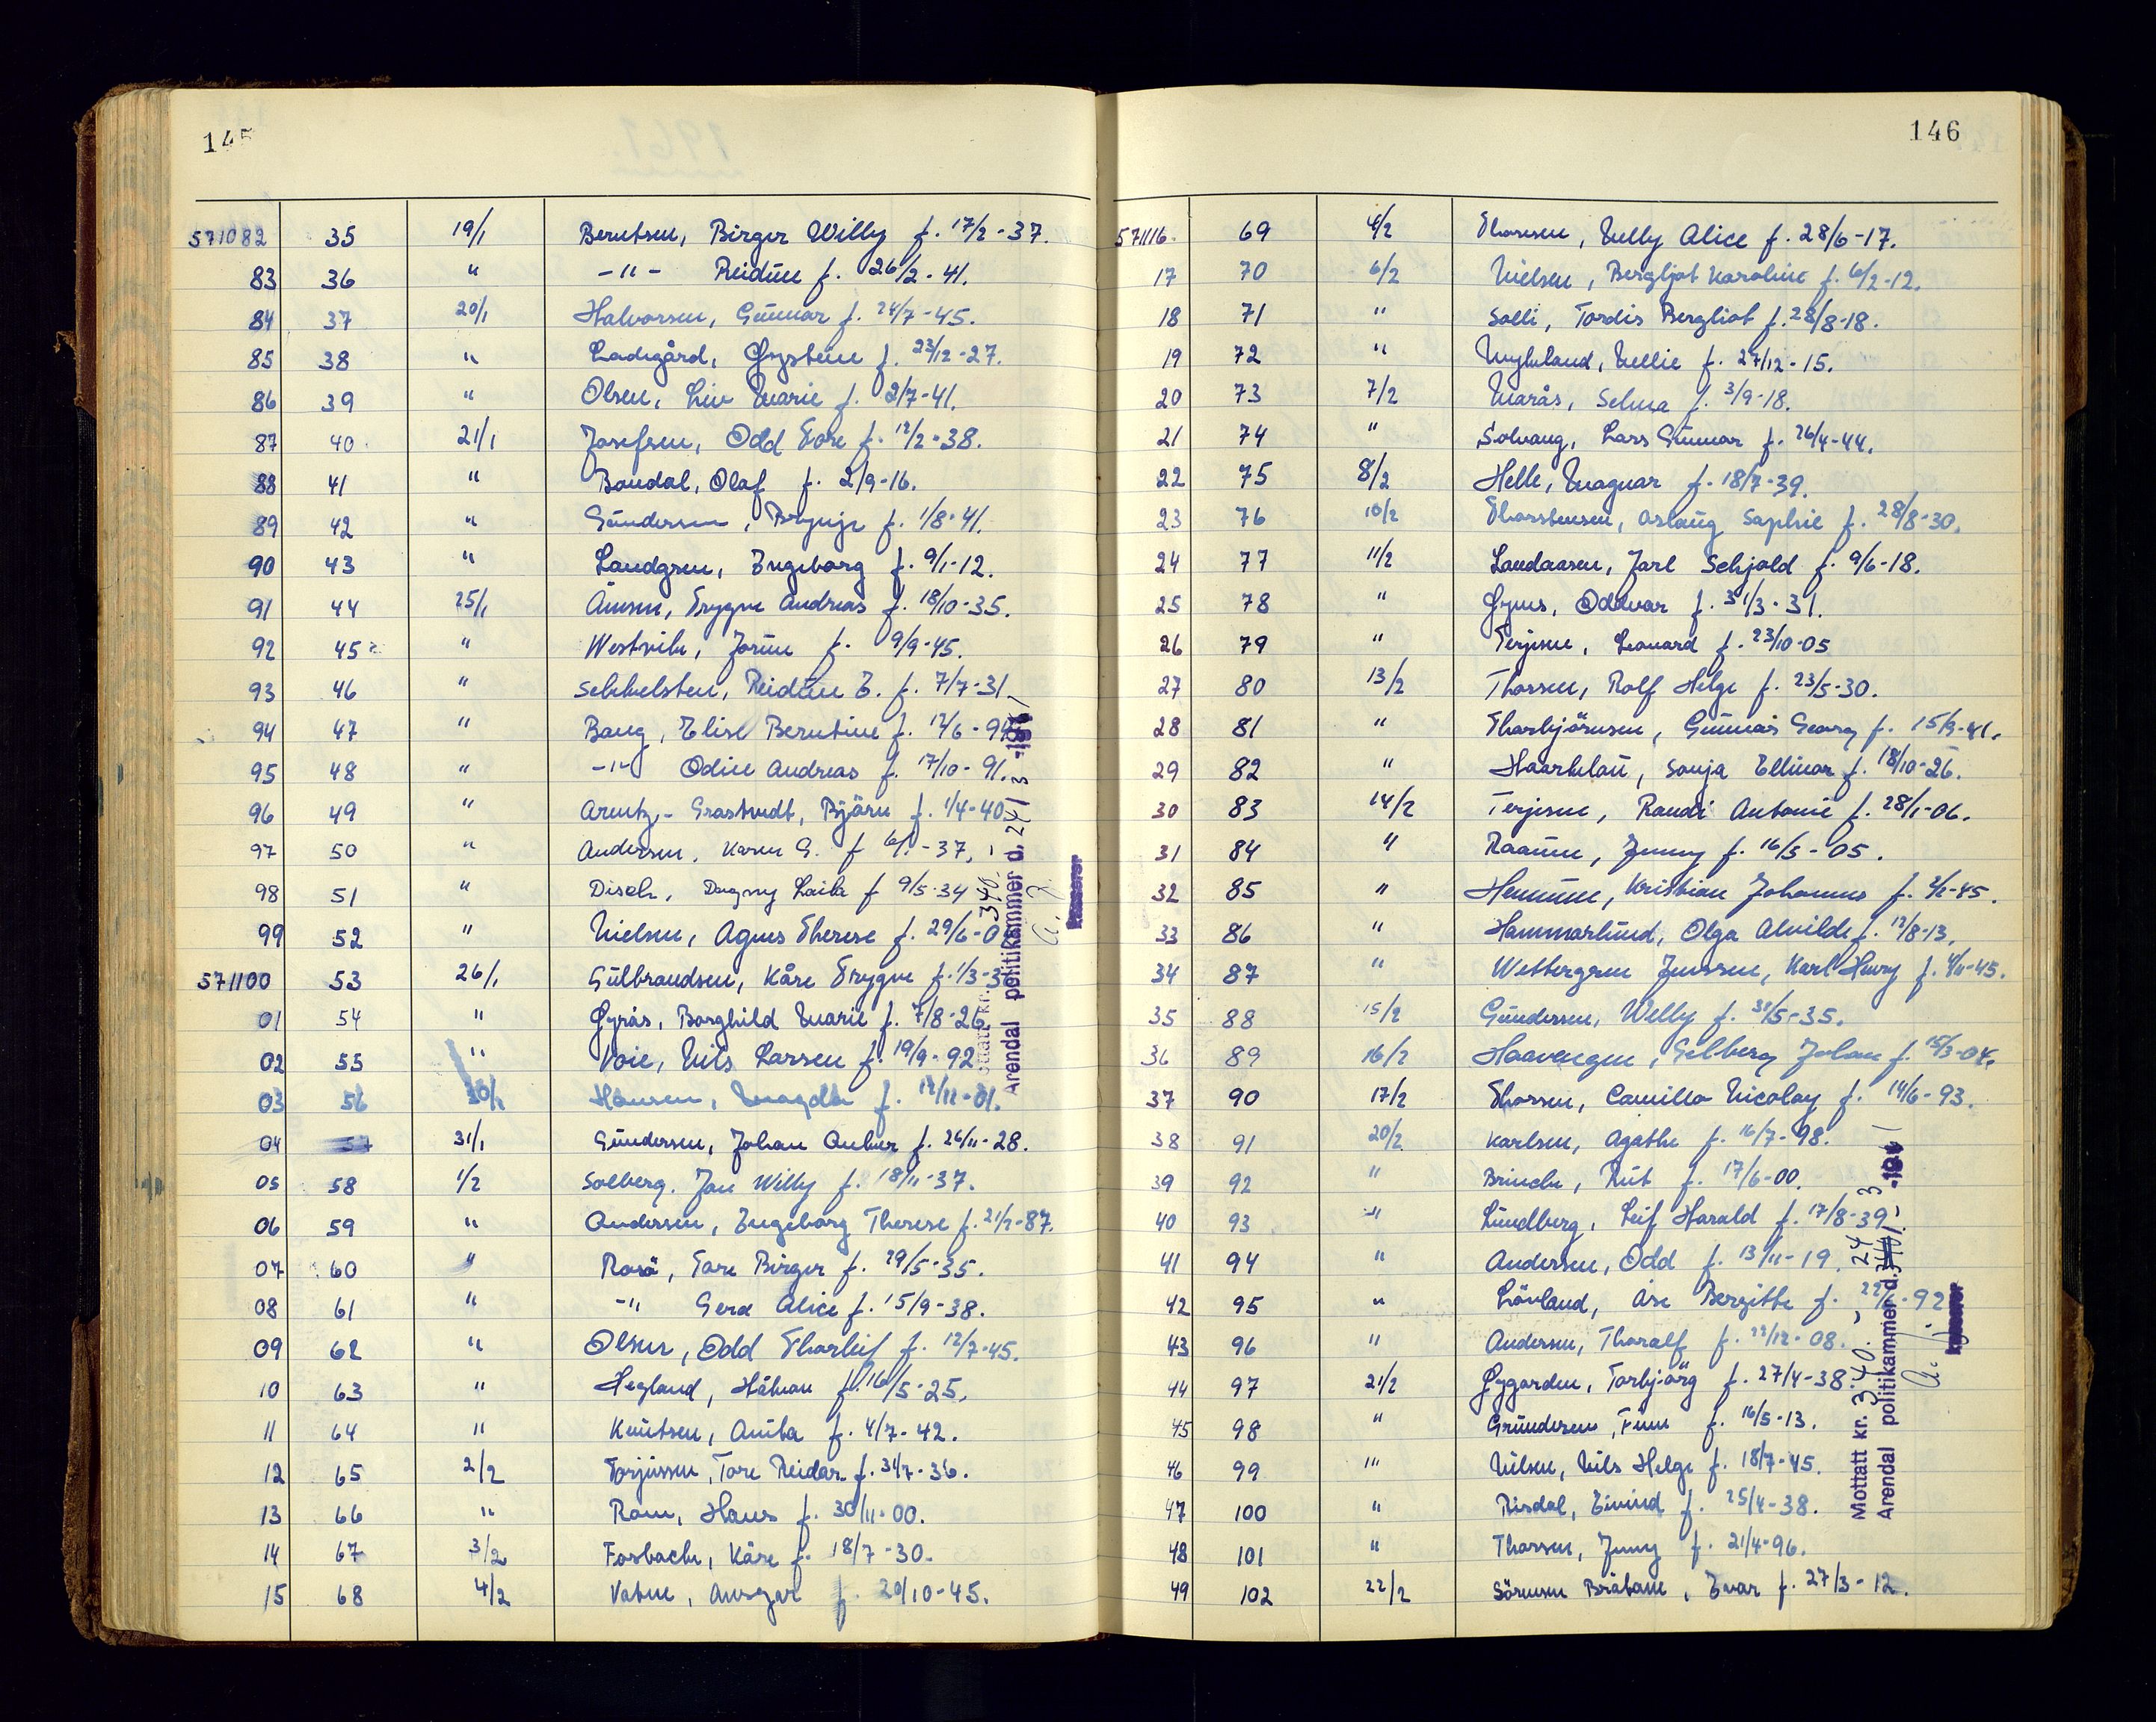 145
571082 35 19/1 Berntsen, Birger Willy f. 17/2-37.
83 36 " -"- Reidun f. 26/2-41.
84 37 20/1 Halvorsen, Gunnar f. 24/7-45.
85 38 " Ladegård, Øystein f. 23/12-27.
86 39 " Olsen, Liv Marie f. 2/7-41.
87 40 21/1 Josefsen, Odd Tore f. 12/2-38.
88 41 " Bondal, Olaf f. 2/9-16.
89 42 " Gundersen, f. 1/8-41.
90 43 " Landgren, Ingeborg f. 9/1-12.
91 44 25/1 Trygve Andreas f. 18/10-35.
92 45 " Westvik, Jorun f. 9/9-45.
93 46 " Reidun E. f. 7/7-31
94 47 " Baug, Elise Berntine f. 12/6-94
95 48 " -"- Odin Andreas f. 17/10-91.
96 49 " Arentz-Grastvedt, Björn f. 1/4-40
97 50 " Andersen, Karen G. f -37.
98 51 " Disch, Dagny Laila f 9/5-34
99 52 " Nielsen, Agnes Therese f. 29/6-0
571100 53 26/1 Gulbrandsen, Kåre Trygve f. 1/3-3
01 54 " Øyrås, Borghild Marie f. 7/8-26
02 55 " Voie, Nils Larsen f. 19/9-92
03 56 30/1 Hansen, Magda f. 12/12-01.
04 57 31/1 Gundersen, Johan f. 26/11-28.
05 58 1/2 Solberg, Jan Willy f. 18/11-37.
06 59 " Andersen, Ingeborg Therese f. 21/2-87.
07 60 " Rosö, Tore Birger f. 29/5-35.
08 61 " -"- Gerd Alice f. 15/9-38.
09 62 " Olsen, Odd Thorleif f. 12/7-45.
10 63 " Hegland, Håkon f. 16/5-25.
11 64 " Knutsen, Anita f. 4/7-42.
12 65 2/2 Torjussen, Tore Reidar f. 31/7-36.
13 66 " Rom, Hans f. 30/11-00.
14 67 3/2 Fosbach, Kåre f. 18/7-30.
15 68 4/2 Vatne, Ansgar f. 20/10-45.
Arendal politikammer d. 24/3 -1961
kasserer
146
571116. 69 4/2 Thorsen, Nelly Alice f. 28/6-17.
17 70 6/2 Nielsen, Bergljot Karoline f. 6/2-12.
18 71 " Solli, Tordis Bergliot f. 28/8-18.
19 72 " Myhland, Nellie f. 27/12-15.
20 73 7/2 Marås, Selma f. 3/9-18.
21 74 " Solvang, Lars Gunnar f. 26/4-44.
22 75 8/2 Helle, Magnar f. 18/7-39.
23 76 10/2 Thorstensen, Aslaug Sophie f. 28/8-30.
24 77 11/2 Landaasen, Jarl Schjold f. 9/6-18.
25 78 " Oddvar f. 31/3-31.
26 79 " Terjesen, Leonard f. 23/10-05
27 80 13/2 Thorsen, Rolf Helge f. 23/5-30.
28 81 " Thorbjörnsen, Gunnar Georg f. 15/9-41.
29 82 " Sonja Ellinor f. 18/10-26.
30 83 14/2 Terjesen, Randi Antonie f. 28/1-06.
31 84 " Raaum, Jenny f. 16/5-05.
32 85 " Kristian Johannes f. 2/2-45.
33 86 " Hammarlund, Olga Alvilde f. 12/8-13.
34 87 " Wettergren Jenssen, Karl Henry f. 4/11-45.
35 88 15/2 Gundersen, Willy f. 31/5-35.
36 89 16/2 Haavengen, Johan f. 15/3-04.
37 90 17/2 Thorsen, Camilla Nicolay f. 14/6-93.
38 91 20/2 Karlsen, Agathe f. 16/7-98.
39 92 " Rut f. 17/6-00.
40 93 " Lundberg, Leif Harald f. 17/8-39
41 94 " Andersen, Odd f. 13/11-19.
42 95 " Lövland, Åse Bergitte f. -92
43 96 " Andersen, Thoralf f. 22/12-08.
44 97 21/2 Øygarden, Torbjörg f. 27/4-38
45 98 " Gundersen, Finn f. 16/5-13.
46 99 "' Nilsen, Nils Helge f. 18/7-45.
47 100 " Risdal, Eivind f. 25/4-38.
48 101 " Thorsen, Jenny f. 21/4-96.
49 102 22/2 Sörensen Bråtane, Ivar f. 27/3-12.
Mottatt kr. 340.-
Arendal politikammer d. 24/3 -1961
kasserer